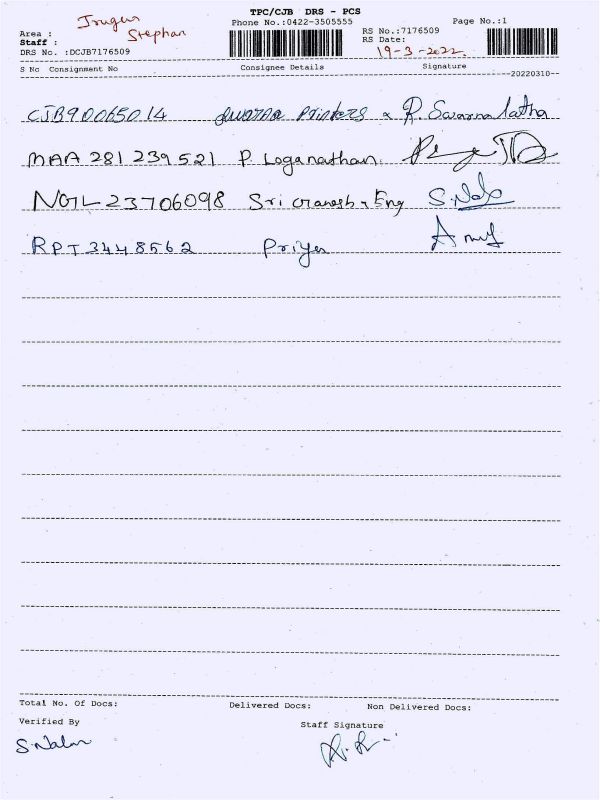 TPC/CJB DRS - PCS
Phone No.:0422-3505555 Page No.:1
Area :
Staff : Stephan
RS No.:7176509
RS Date: 19-3-2022
DRS No. :DCJB7176509
S No Consignment No Consignee Details Signature
20220310
CJB90065014 Swarna Printers R. Swarna latha
MAA 281239521 P. Loganathan
NGL-23706098 Sri Ganesh Eng
RPT 3448562 Priya
Total No. Of Docs: Delivered Docs: Non Delivered Docs:
Verified By Staff Signature